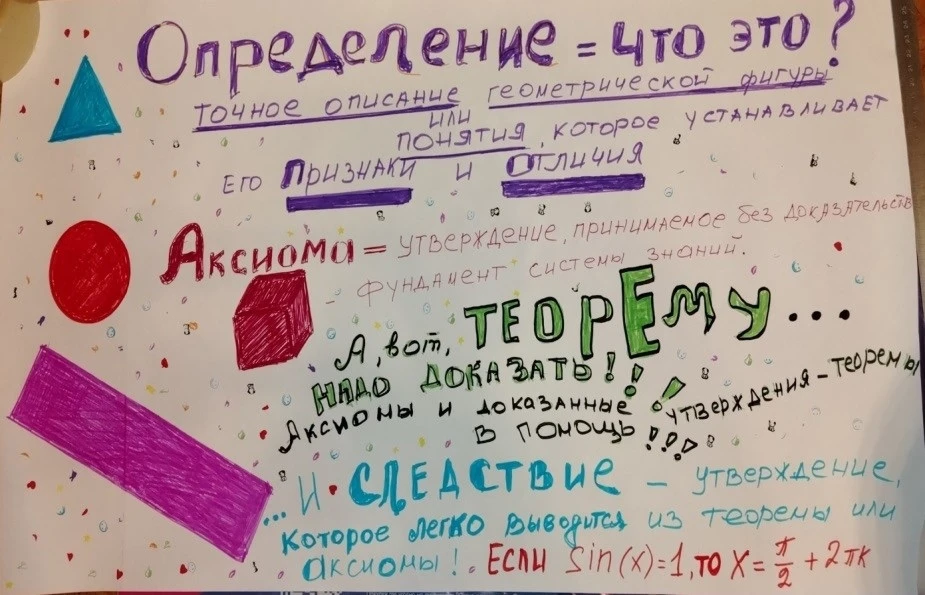 Определение = что это?
точное описание геометрической фигуры
или
понятия, которое устанавливает
его признаки и отличия
Аксиома = утверждение, принимаемое без доказательств
- фундамент системы знаний.
А, вот, ТЕОРЕМУ...
НАДО ДОКАЗАТЬ!!!
Аксиомы и доказанные утверждения - теоремы
в помощь!!!
...И СЛЕДСТВИЕ - утверждение,
которое легко выводится из теоремы или
аксиомы! Если Sin(x)=1, то x = π/2 + 2πk